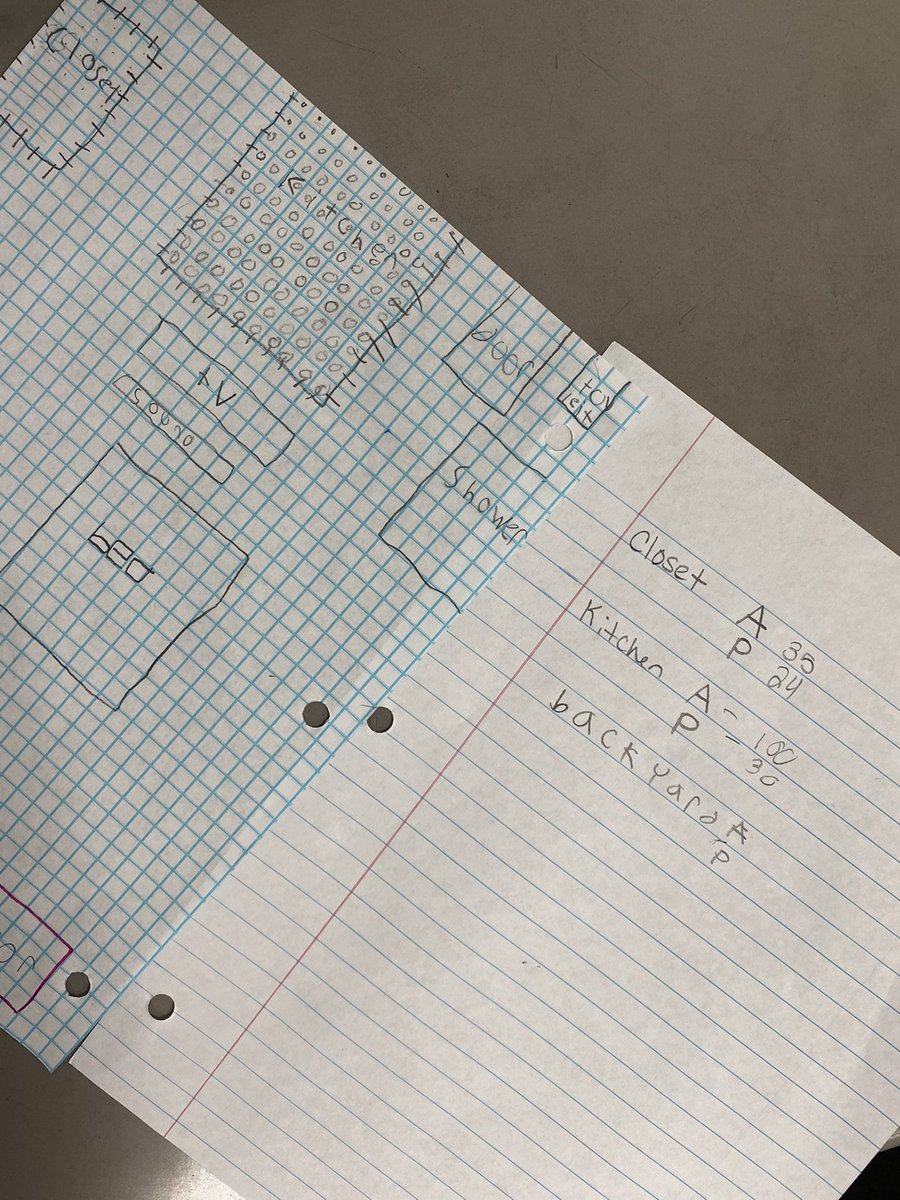 Closet
Kitchen
door
toy
let
tV
Shower
bed
Closet A 35
P 24
Kitchen A = 100
P = 30
backyard A
P